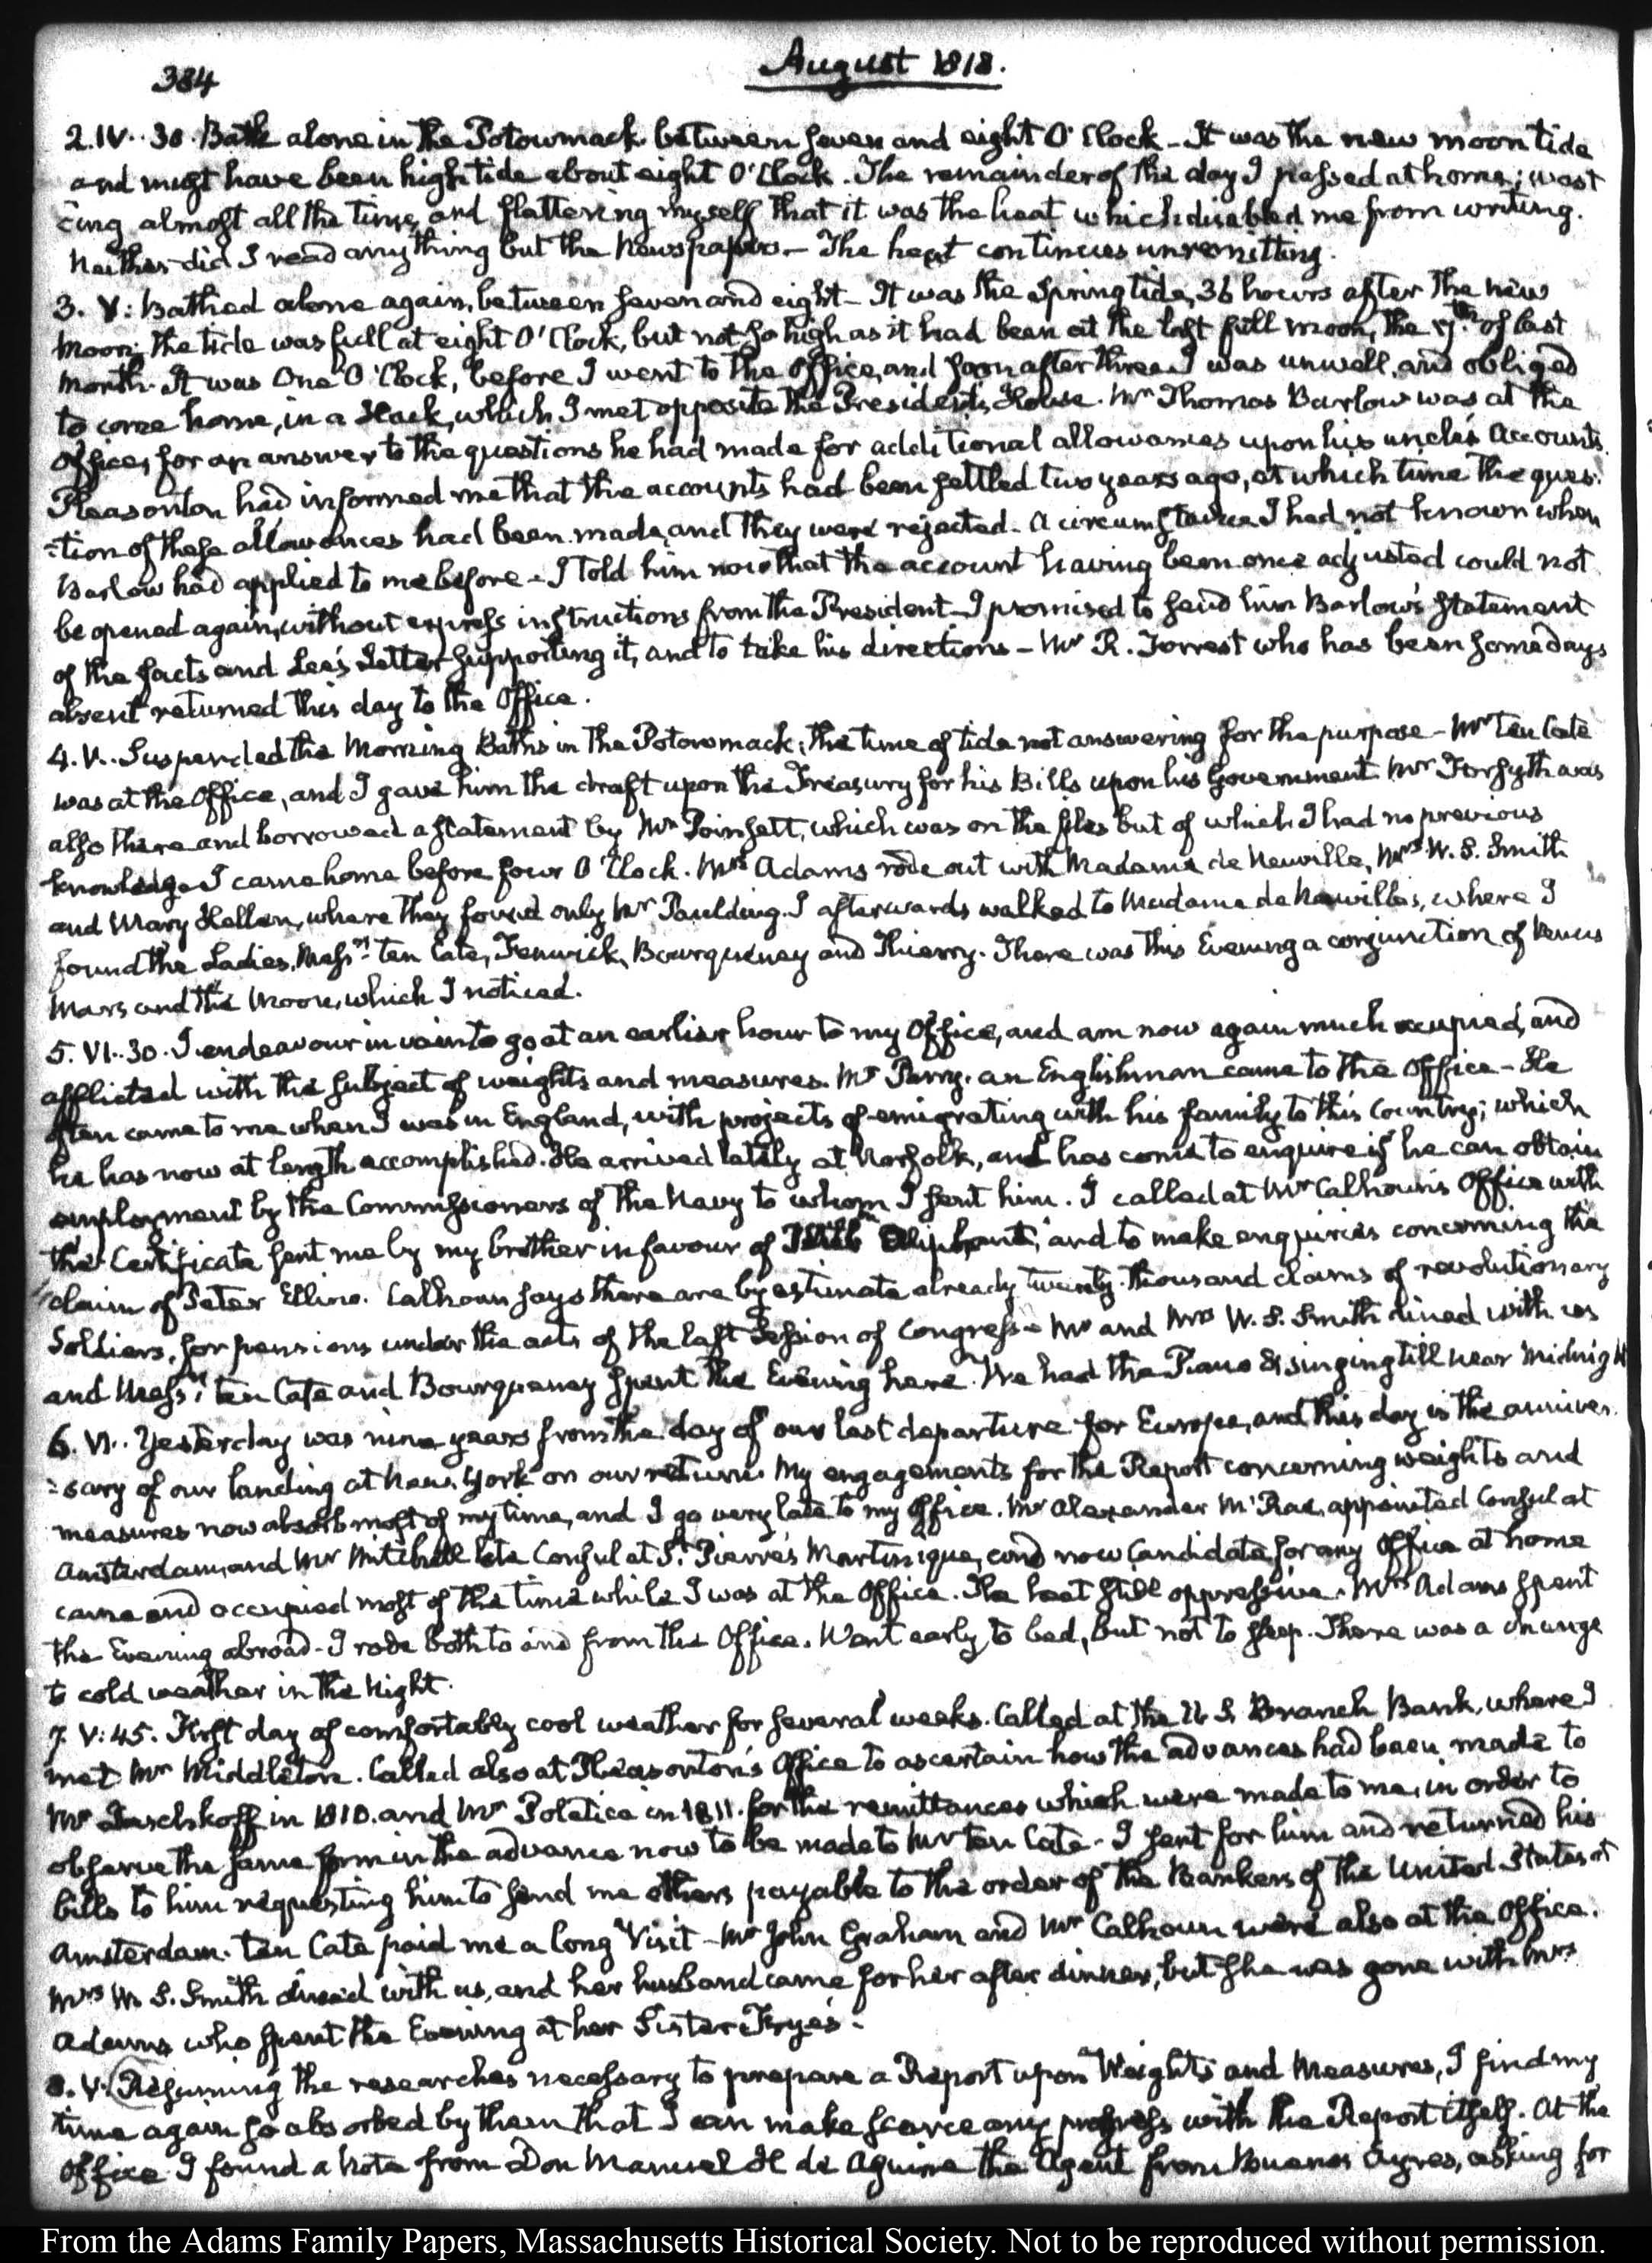 384
August 1818.
2. IV..30. Bath alone in the Potowmack between seven and eight O'Clock - It was the new moon tide
and must have been high tide about eight O'Clock. The remainder of the day I passed at home; wast
:ing almost all the time, and flattering myself that it was the heat which disabled me from writing.
Neither did I read any thing but the Newspapers. - The heat continues unremitting.
3. V: Bathed alone again, between seven and eight - It was the Spring tide, 36 hours after the new
Moon; the tide was full at eight O'Clock, but not so high as it had been at the last full moon, the 17th. of last
Month. It was One O'Clock, before I went to the Office, and soon after three I was unwell, and obliged
to come home, in a Hack, which I met opposite the President's House. Mr Thomas Barlow was at the
Office, for an answer to the questions he had made for additional allowances upon his uncle's Accounts.
Pleasonton had informed me that the accounts had been settled two years ago, at which time the ques:
:tion of these allowances had been made, and they were rejected. A circumstance I had not known when
Barlow had applied to me before - I told him now that the account having been once adjusted could not
be opened again, without express instructions from the President - I promised to send him Barlow's statement
of the facts and Lee's Letter supporting it, and to take his directions - Mr R. Forrest who has been some days
absent returned this day to the Office.
4. V.. Suspended the Morning Baths in the Potowmack; the time of tide not answering for the purpose - Mr Ten Cate
was at the Office, and I gave him the draft upon the Treasury for his Bills upon his Government. Mr Forsyth was
also there and borrowed a statement by Mr Poinsett, which was on the files but of which I had no previous
knowledge. I came home before four O'Clock. Mrs Adams rode out with Madame de Neuville, Mrs W. S. Smith
and Mary Hellen, where they found only Mr Paulding. I afterwards walked to Madame de Neuville's, where I
found the Ladies, Messrs ten Cate, Fenwick, Bourqueney and Thierry. There was this Evening a conjunction of Venus
Mars and the Moon, which I noticed.
5. VI..30. I endeavour in vain to go at an earlier hour to my Office, and am now again much occupied, and
afflicted with the subject of weights and measures. Mr Parry, an Englishman came to the Office - He
often came to me when I was in England, with projects of emigrating with his family to this Country; which
he has now at length accomplished. He arrived lately at Norfolk, and has come to enquire if he can obtain
employment by the Commissioners of the Navy to whom I sent him. I called at Mr Calhoun's Office with
the Certificate sent me by my brother in favour of Oliphant, and to make enquiries concerning the
claim of Peter Elline. Calhoun says there are by estimate already twenty thousand claims of revolutionary
Soldiers, for pensions under the acts of the last Session of Congress - Mr and Mrs W. S. Smith dined with us
and Messrs ten Cate and Bourqueney spent the Evening here. We had the Piano & singing till near Midnight
6. VI.. Yesterday was nine years from the day of our last departure for Europe, and this day is the anniver.
:sary of our landing at New-York on our return. My engagements for the Report concerning weights and
measures now absorb most of my time, and I go very late to my Office. Mr Alexander M'Rae, appointed Consul at
Amsterdam, and Mr Mitchell late Consul at St. Pierre's Martinique, and now Candidate for any Office at home
came and occupied most of the time while I was at the Office. The heat still oppressive. Mrs Adams spent
the Evening abroad - I rode both to and from the Office. Went early to bed, but not to sleep. There was a change
to cold weather in the Night.
7. V:45. First day of comfortably cool weather for several weeks. Called at the U S. Branch Bank, where I
met Mr Middleton. Called also at Pleasonton's Office to ascertain how the advances had been made to
Mr Daschkoff in 1810. and Mr Poletica in 1811. for the remittances which were made to me, in order to
observe the same form in the advance now to be made to Mr ten Cate - I sent for him and returned his
bills to him requesting him to send me others payable to the order of the Bankers of the United States at
Amsterdam. Ten Cate paid me a long Visit - Mr John Graham and Mr Calhoun were also at the Office.
Mrs W. S. Smith dined with us, and her husband came for her after dinner, but she was gone with Mrs
Adams who spent the Evening at her Sister Frye's.
8. V. Resuming the researches necessary to prepare a Report upon Weights and Measures, I find my
time again so absorbed by them that I can make scarce any progress with the Report itself. At the
Office I found a Note from Don Manuel H de Aguirre the Agent from Buenos Ayres, asking for
From the Adams Family Papers, Massachusetts Historical Society. Not to be reproduced without permission.